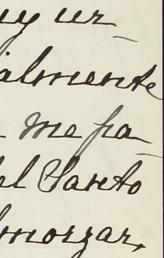 uy ur-
ialmente
me pa-
el Santo
lmorzar,